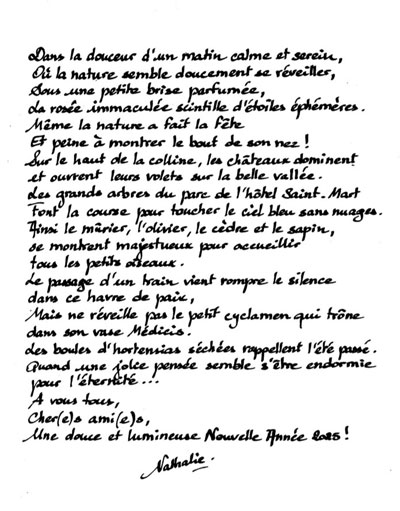 Dans la douceur d'un matin calme et serein,
Où la nature semble doucement se réveiller,
Sous une petite brise parfumée,
La rosée immaculée scintille d'étoiles éphémères.
Même la nature a fait la fête
Et peine à montrer le bout de son nez !
Sur le haut de la colline, les châteaux dominent
et ouvrent leurs volets sur la belle vallée.
Les grands arbres du parc de l'hôtel Saint-Mart
Font la course pour toucher le ciel bleu sans nuages.
Ainsi le mûrier, l'olivier, le cèdre et le sapin,
se montrent majestueux pour accueillir
tous les petits oiseaux.
Le passage d'un train vient rompre le silence
dans ce havre de paix,
Mais ne réveille pas le petit cyclamen qui trône
dans son vase Médicis.
Les boules d'hortensias séchées rappellent l'été passé.
Quand une jolie pensée semble s'être endormie
pour l'éternité...
A vous tous,
Cher(e)s ami(e)s,
Une douce et lumineuse Nouvelle Année 2025 !
Nathalie.